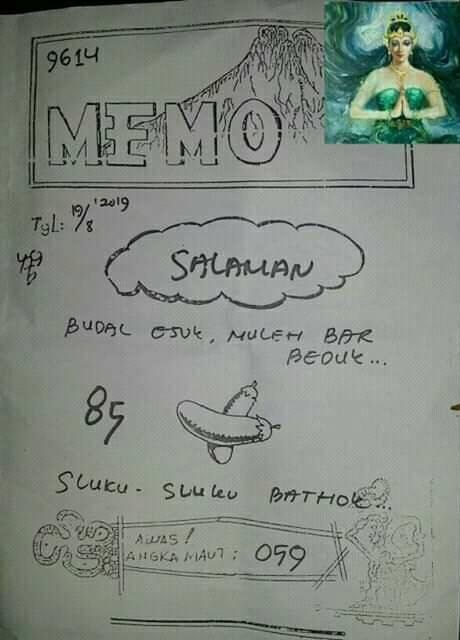 9614
MEMO
TGL: 19/8 '2019
SALAMAN
BUDAL ESUK, MULEH BAR
BEDUK...
85
SLUKU-SLUKU BATHOK...
AWAS!
ANGKA MAUT: 059